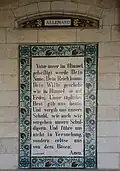 ALLEMAND
Vater unser im Himmel
geheiligt werde Dein
Name. Dein Reich komme.
Dein Wille geschehe
wie im Himmel so auf
Erden. Unser tägliches
Brot gib uns heute.
Und vergib uns unsere
Schuld, wie auch wir
vergeben unsern Schul-
digern. Und führe uns
nicht in Versuchung
sondern erlöse uns
von dem Bösen.
Amen.